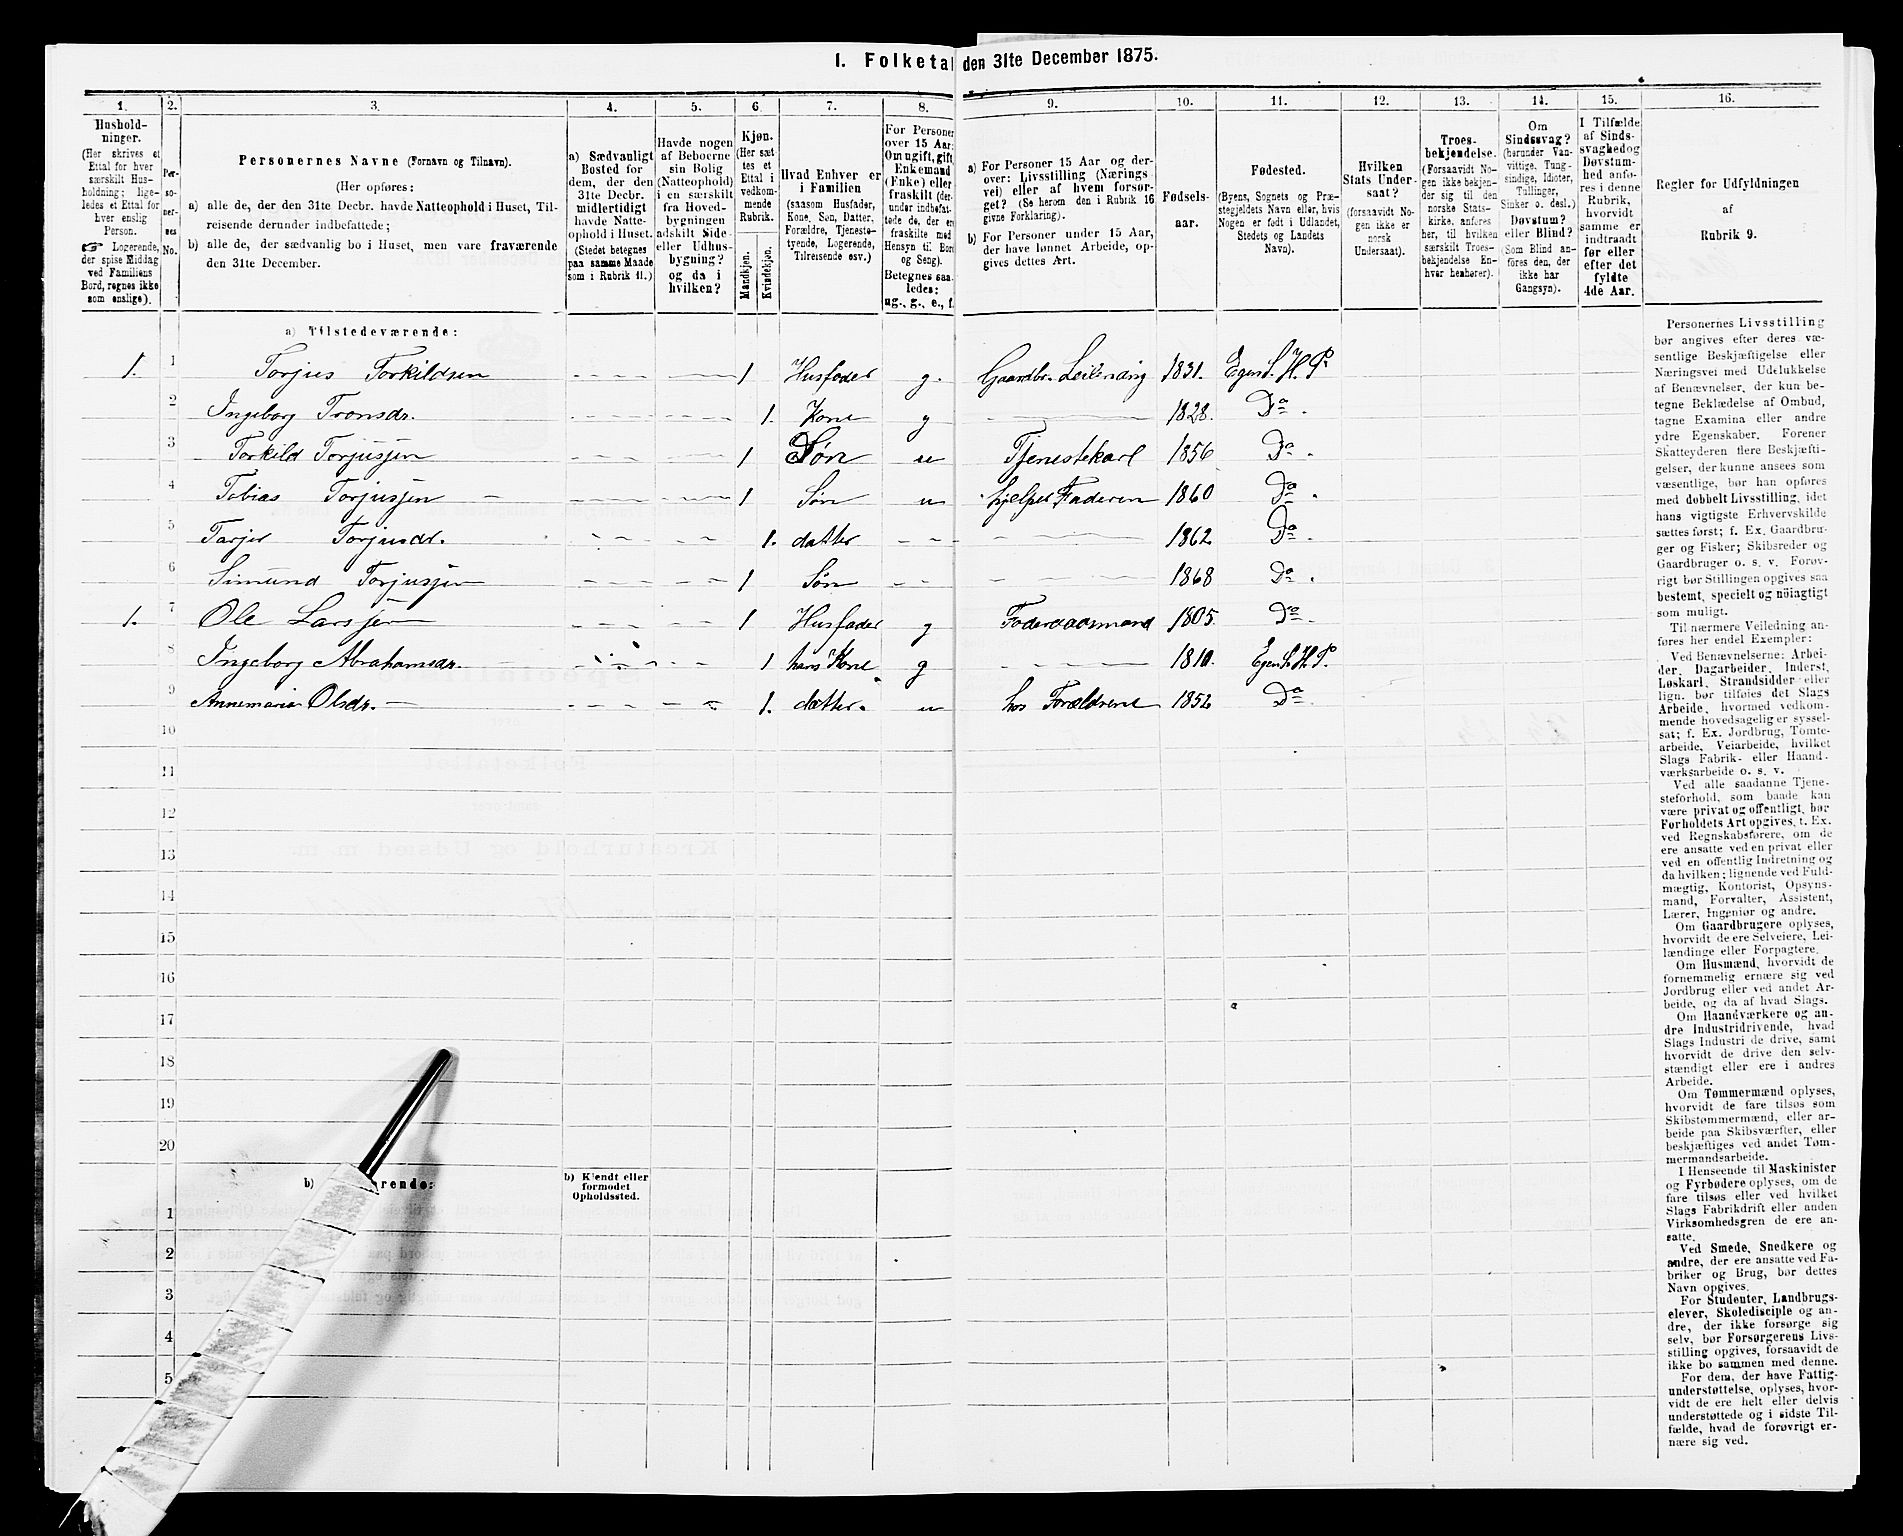 I. Folketal den 31te December 1875.
1. 2. 3. 4. 5. 6. 7. 8. 9. 10. 11. 12. 13. 14. 15. 16.
Hushold-
ninger.
(Her skrives et
Ettal for hver
særskilt Hus-
holdning; lige-
ledes et Ettal for
hver enslig
Person.
☞ Logerende,
der spise Middag
ved Familiens
Bord, regnes ikke
som enslige).
Per-
so-
ner-
nes
No.
Personernes Navne (Fornavn og Tilnavn).
(Her opføres:
a) alle de, der den 31te Decbr. havde Natteophold i Huset, Til-
reisende derunder indbefattede;
b) alle de, der sædvanlig bo i Huset, men vare fraværende
den 31te December.
a) Sædvanligt
Bosted for
dem, der den
31te Decbr.
midlertidigt
havde Natte-
ophold i Huset.
(Stedet betegnes
paa samme Maade
som i Rubrik 11.)
Havde nogen
af Beboerne
sin Bolig
(Natteophold)
i en særskilt
fra Hoved-
bygningen
adskilt Side-
eller Udhus-
bygning?
og da i
hvilken?
Kjøn.
(Her sæt
tes et
Ettal i
vedkom-
mende
Rubrik.
Mandkjøn.
Kvindekjøn.
Hvad Enhver er
i Familien
(saasom Husfader,
Kone, Søn, Datter,
Forældre, Tjeneste-
tyende, Logerende,
Tilreisende osv.)
For Personer
over 15 Aar:
Om ugift, gift,
Enkemand
(Enke) eller
fraskilt (der-
under indbefat-
tede de, der ere
fraskilte med
Hensyn til Bord
og Seng).
Betegnes saa-
ledes:
ug., g., e., f.
a) For Personer 15 Aar og der-
over: Livsstilling (Nærings
vei) eller af hvem forsør-
get? (Se herom den i Rubrik 16
givne Forklaring).
b) For Personer under 15 Aar,
der have lønnet Arbeide, op-
gives dettes Art.
Fødsels-
aar.
Fødested.
(Byens, Sognets og Præ-
stegjeldets Navn eller, hvis
Nogen er født i Udlandet,
Stedets og Landets
Navn).
Hvilken
Stats Under-
saat?
(forsaavidt No-
gen ikke er
norsk
Undersaat).
Troes-
bekjendelse.
(Forsaavidt No-
gen ikke bekjen-
der sig til den
norske Stats-
kirke, anføres
her, til hvilken
særskilt Troes-
bekjendelse En-
hver henhører).
Om
Sindssvag?
(herunder Van-
vittige, Tung-
sindige, Idioter,
Tullinger,
Sinker o. desl.)
Døvstum?
eller Blind?
(Som Blind an-
føres den, der
ikke har
Gangsyn).
I Tilfælde
af Sinds-
svaghed og
Døvstum-
hed anfø-
res i denne
Rubrik,
hvorvidt
samme er
indtraadt
før eller
efter det
fyldte
4de Aar.
Regler for Udfyldningen
af
Rubrik 9.
a) Tilstedeværende:
1. 1 Torjus Torkildsen 1 Husfader g. Gaardbr. Leilending 1831. Egen S. H. P
2 Ingeborg Tronsdr. 1. Kone g 1828. Do.
3 Torkild Torjussen 1 Søn u Tjenestekarl 1856 Do.
4 Tobias Torjussen 1 Søn u hjelper Faderen 1860 Do.
5 Tarjer Torjusdr. 1. datter 1862 Do.
6 Simund Torjussen 1 Søn 1868 Do.
1. 7 Ole Larssen 1 Husfader g Foderaadsmand 1805. Do.
8 Ingeborg Abrahamsdr. 1 hans Kone g 1810. Egen S. H. P.
9 Annemaria Olsdr. 1. datter. u hos Forældrene 1852 Do.
10
11
12
13
14
15
16
17
18
19
20
b) rende:
b) Kjendt eller
formodet
Opholdssted.
1
2
3
4
5
Personernes Livsstilling
bør angives efter deres væ-
sentlige Beskjæftigelse eller
Næringsvei med Udelukkelse
af Benævnelser, der kun be-
tegne Beklædelse af Ombud,
tagne Examina eller andre
ydre Egenskaber. Forener
Skatteyderen flere Beskjæfti-
gelser, der kunne ansees som
væsentlige, bør han opføres
med dobbelt Livsstilling, idet
hans vigtigste Erhvervskilde
sættes først; f. Ex. Gaardbru-
ger og Fisker; Skibsreder og
Gaardbruger o. s. v. Forøv-
rigt bør Stillingen opgives saa
bestemt, specielt og nöiagtigt
som muligt.
Til nærmere Veiledning an-
føres her endel Exempler:
Ved Benævnelserne: Arbei-
der, Dagarbeider, Inderst,
Løskarl, Strandsidder eller
lign. bør tilføies det Slags
Arbeide, hvormed vedkom-
mende hovedsagelig er syssel-
sat; f. Ex. Jordbrug, Tomte-
arbeide, Veiarbeide, hvilket
Slags Fabrik- eller Haand-
værksarbeide o. s. v.
Ved alle saadanne Tjene-
steforhold, som baade kan
være privat og offentligt, bør
Forholdets Art opgives, t. Ex.
ved Regnskabsførere, om de
ere ansatte ved en privat eller
ved en offentlig Indretning og
da hvilken; lignende ved Fuld-
mægtig, Kontorist, Opsyns-
mand, Forvalter, Assistent,
Lærer, Ingeniør og andre.
Om Gaardbrugere oplyses,
hvorvidt de ere Selveiere, Lei-
lændinge eller Forpagtere.
Om Husmænd, hvorvidt de
fornemmelig ernære sig ved
Jordbrug eller ved andet Ar-
beide, og da af hvad Slags.
Om Haandværkere og an-
dre Industridrivende, hvad
Slags Industri de drive, samt
hvorvidt de drive den selv-
stændigt eller ere i andres
Arbeide.
Om Tømmermænd oplyses,
hvorvidt de fare tilsøs som
Skibstømmermænd, eller ar-
beide paa Skibsværfter, eller
beskjæftiges ved andet Tøm-
mermandsarbeide.
I Henseende til Maskinister
og Fyrbødere oplyses, om de
fare tilsøs eller ved hvilket
Slags Fabrikdrift eller anden
Virksomhedsgren de ere an-
satte.
Ved Smede, Snedkere og
andre, der ere ansatte ved Fa-
briker og Brug, bør dettes
Navn opgives.
For Studenter, Landbrugs-
elever, Skoledisciple og an-
dre, der ikke forsørge sig
selv, bør Forsørgerens Livs-
stilling opgives, forsaavidt de
ikke bo sammen med denne.
For dem, der have Fattig-
understøttelse, oplyses, hvor-
vidt de ere helt eller delvis
understøttede og i sidste Til-
fælde, hvad de forøvrigt er-
nære sig ved.